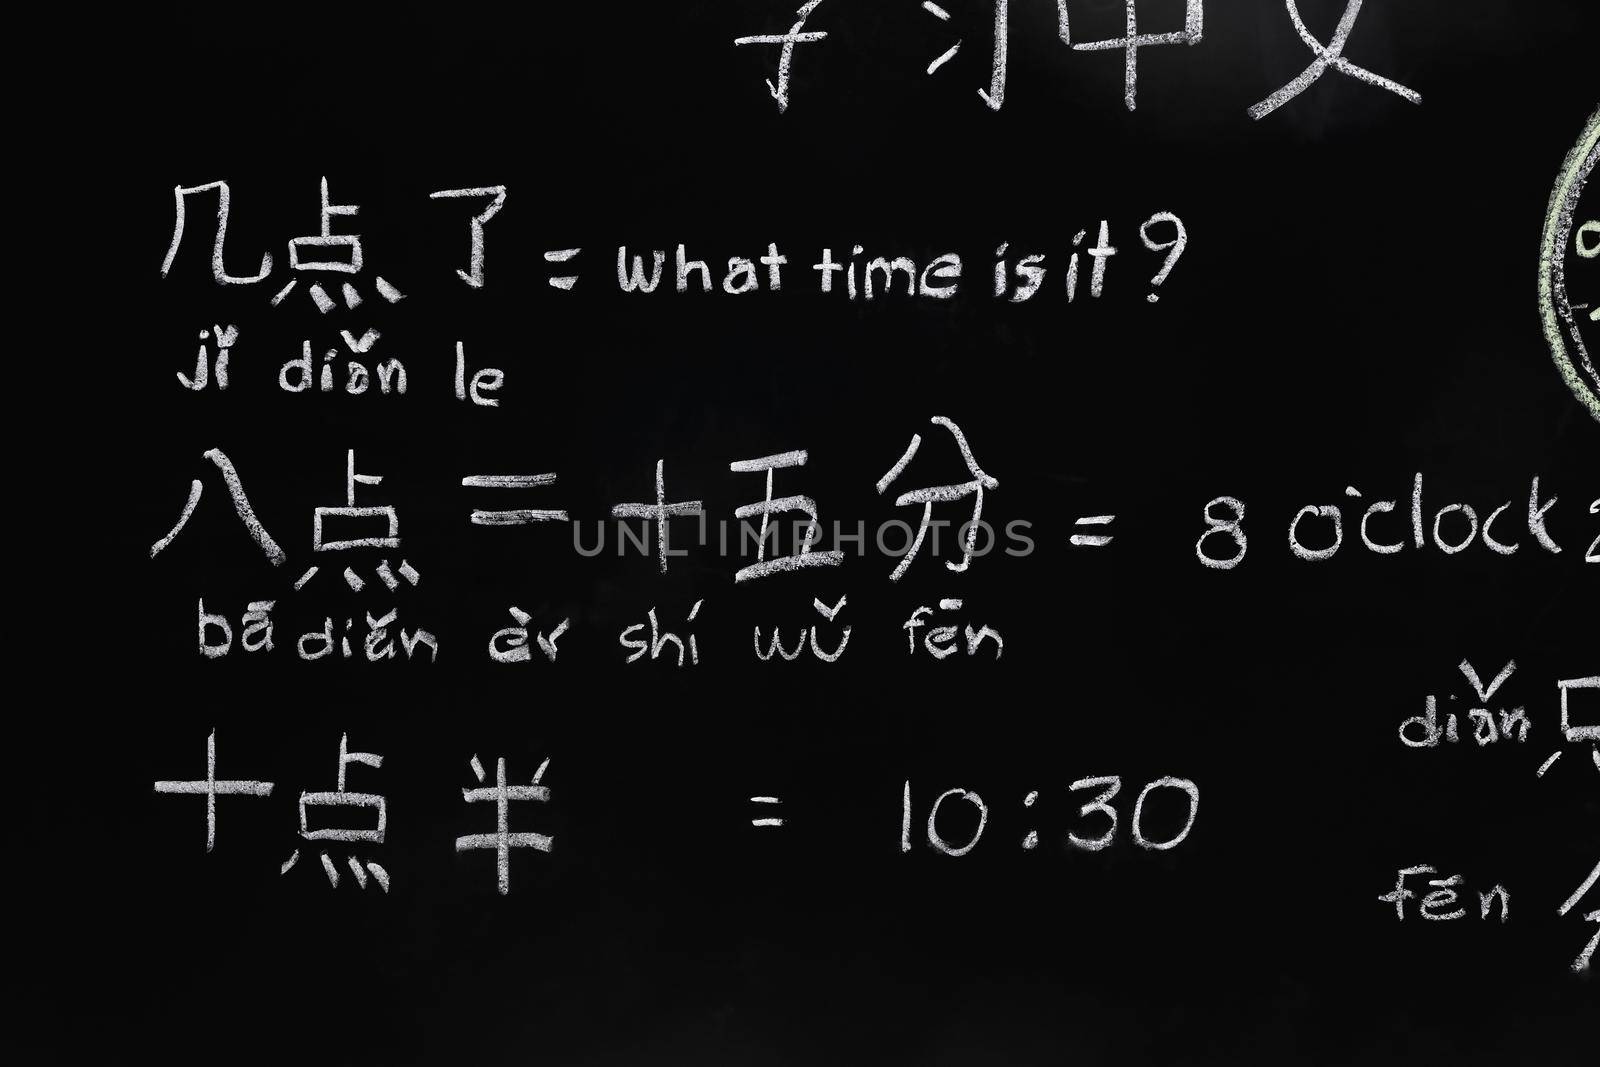 学习中文
几点了 = what time is it ?
jǐ diǎn le
八点二十五分 = 8 o'clock
bā diǎn èr shí wǔ fēn
十点半 = 10 : 30
diǎn 点
fēn 分
UNLIMPHOTOS